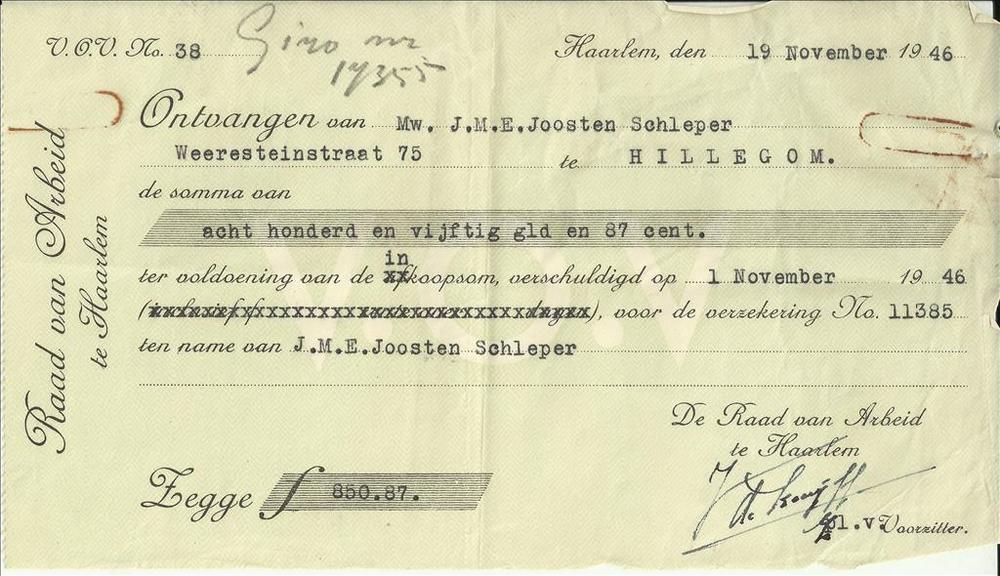 V.O.V. No. 38
Giro nr
17355
Haarlem, den 19 November 1946
Raad van Arbeid
te Haarlem
Ontvangen van Mw. J.M.E.Joosten Schleper
Weeresteinstraat 75 te HILLEGOM.
de somma van
acht honderd en vijftig gld en 87 cent.
in
ter voldoening van de xxkoopsom, verschuldigd op 1 November 1946
(xxxxxxxxxxxxxxxxxxxxxxxxxxxxxxxxxxxxxxx), voor de verzekering No. 11385
ten name van J.M.E.Joosten Schleper
V.O.V
De Raad van Arbeid
te Haarlem
Zegge ƒ 850.87.
pl.v.Voorzitter.